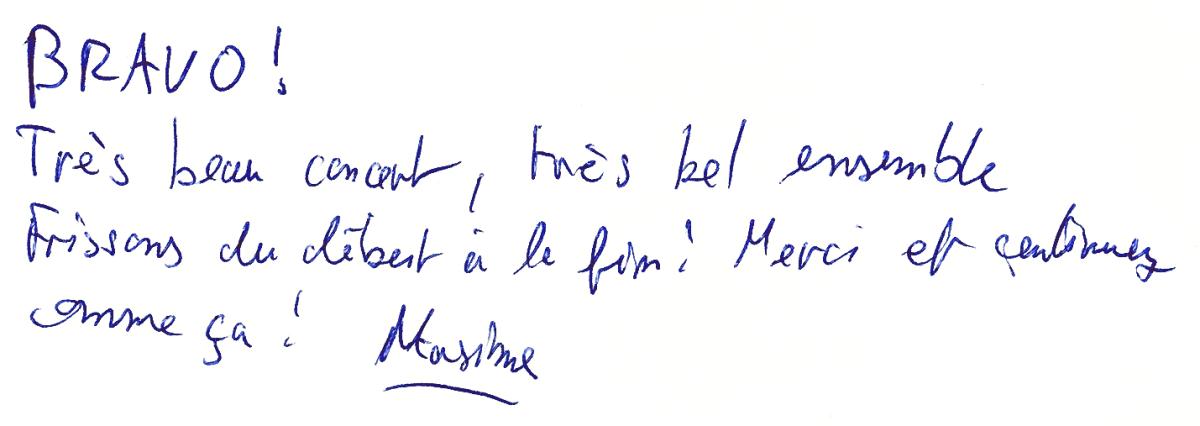 BRAVO !
Très beau concert, très bel ensemble
Frissons du début à la fin ! Merci et continuez
comme ça ! Maxime